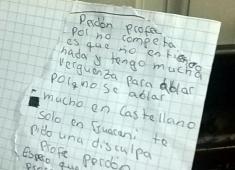 Perdón profe
por no completa
es que no entendo
nada y tengo mucha
verguenza para ablar
porqno se ablar
mucho en castellano
solo en Guarani te
pido una disculpa
Profe perdón
Espero que